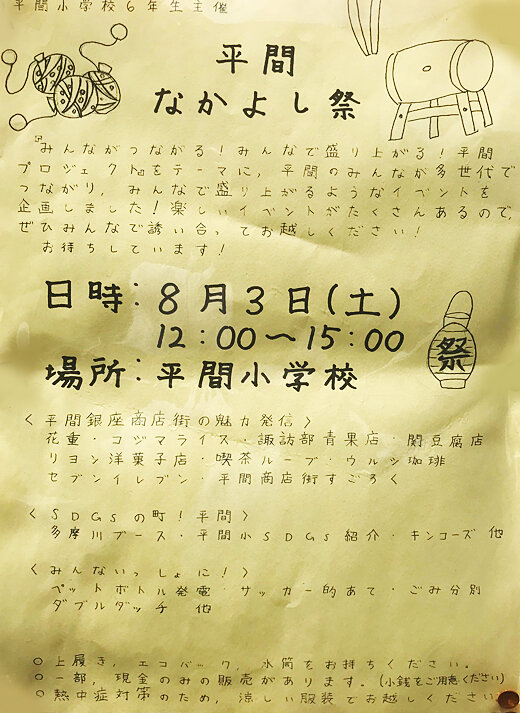 平間小学校6年生主催
平間
なかよし祭
『みんながつながる！みんなで盛り上がる！平間
プロジェクト』をテーマに、平間のみんなが多世代で
つながり、みんなで盛り上がるようなイベントを
企画しました！楽しいイベントがたくさんあるので、
ぜひみんなで誘い合ってお越しください！
お待ちしています！
日時：8月3日(土)
12：00〜15：00
場所：平間小学校
祭
〈平間銀座商店街の魅力発信〉
花重・コジマライス・諏訪部青果店・関豆腐店
リヨン洋菓子店・喫茶ループ・ウルシ珈琲
セブンイレブン・平間商店街すごろく
〈SDGsの町！平間〉
多摩川ブース・平間小SDGs紹介・キンコーズ 他
〈みんないっしょに！〉
ペットボトル発電・サッカー的あて・ごみ分別
ダブルダッチ 他
○上履き、エコバック、水筒をお持ちください。
○一部、現金のみの販売があります。(小銭をご用意ください)
○熱中症対策のため、涼しい服装でお越しください